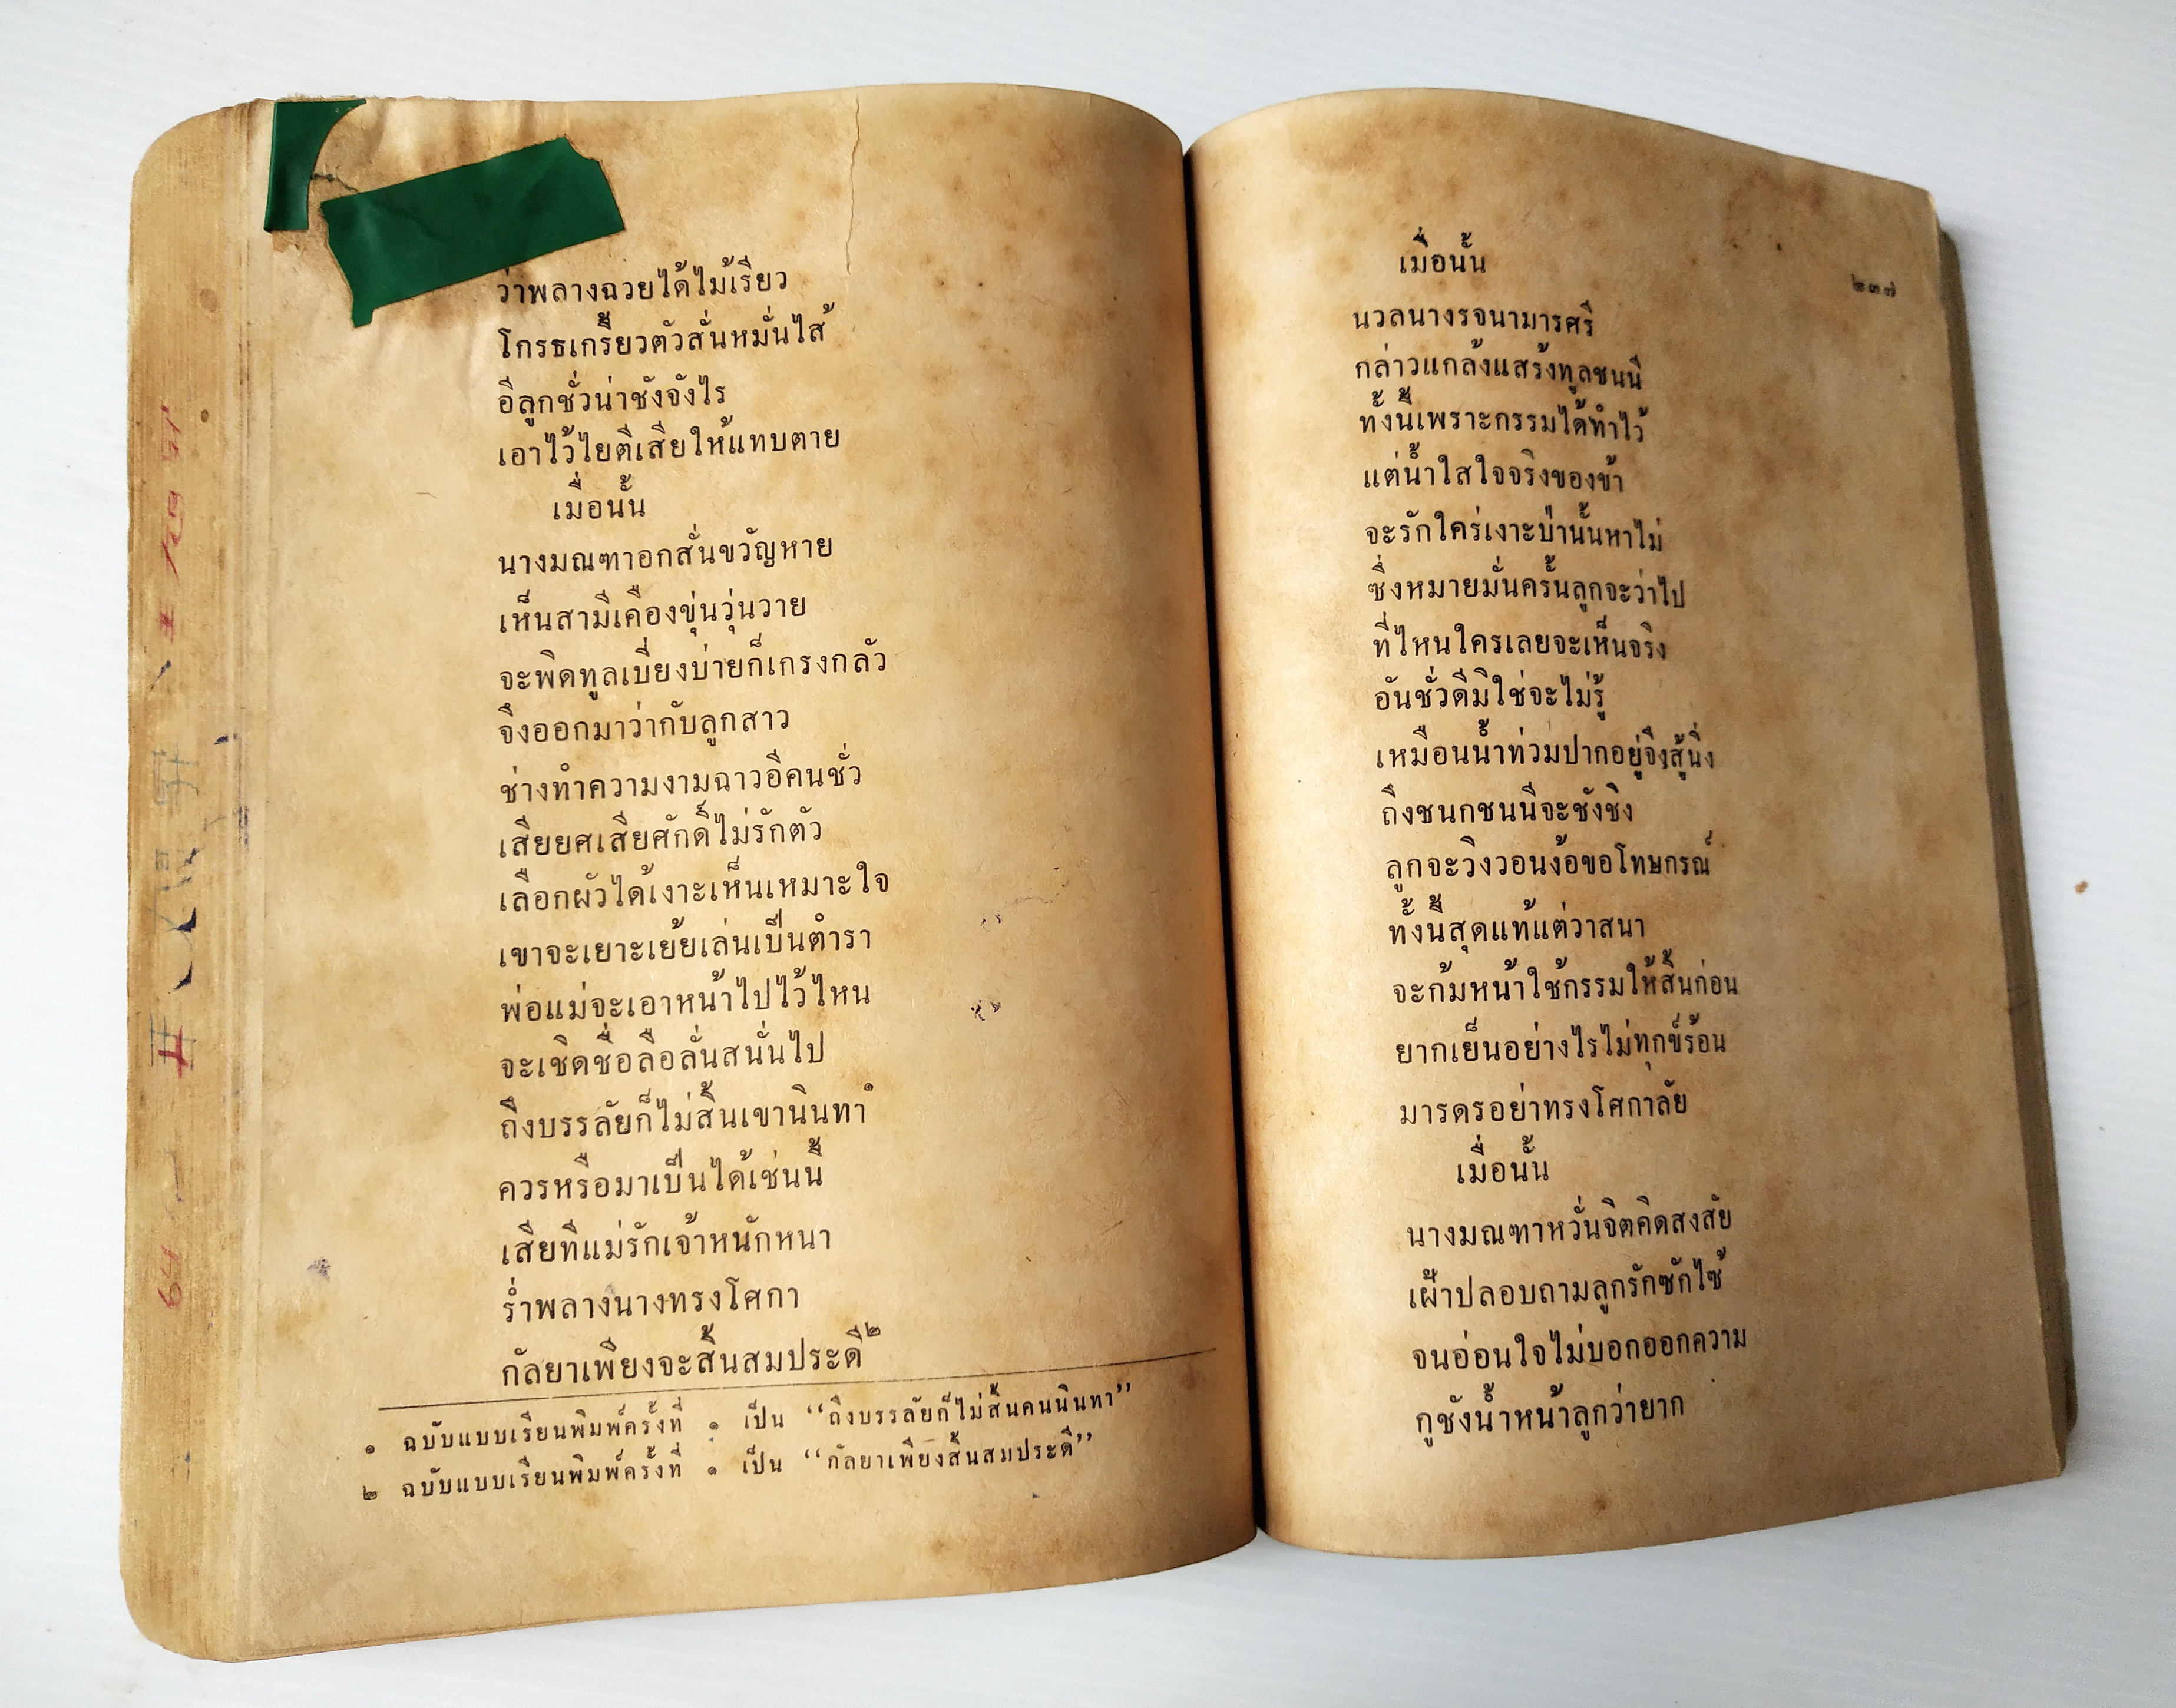 ว่าพลางฉวยได้ไม้เรียว
โกรธเกรี้ยวตัวสั่นหมั่นไส้
อีลูกชั่วน่าชังจังไร
เอาไว้ไยตีเสียให้แทบตาย
เมื่อนั้น
นางมณฑาอกสั่นขวัญหาย
เห็นสามีเคืองขุ่นวุ่นวาย
จะพิดทูลเบี่ยงบ่ายก็เกรงกลัว
จึงออกมาว่ากับลูกสาว
ช่างทำความงามฉาวอีคนชั่ว
เสียยศเสียศักดิ์ไม่รักตัว
เลือกผัวได้เงาะเห็นเหมาะใจ
เขาจะเยาะเย้ยเล่นเป็นตำรา
พ่อแม่จะเอาหน้าไปไว้ไหน
จะเชิดชื่อลือลั่นสนั่นไป
ถึงบรรลัยก็ไม่สิ้นเขานินทา๑
ควรหรือมาเป็นได้เช่นนี้
เสียทีแม่รักเจ้าหนักหนา
ร่ำพลางนางทรงโศกา
กัลยาเพียงจะสิ้นสมประดี๒
๑ ฉบับแบบเรียนพิมพ์ครั้งที่ ๑ เป็น “ถึงบรรลัยก็ไม่สิ้นคนนินทา”
๒ ฉบับแบบเรียนพิมพ์ครั้งที่ ๑ เป็น “กัลยาเพียงสิ้นสมประดี”
๒๓๗
เมื่อนั้น
นวลนางรจนามารศรี
กล่าวแกล้งแสร้งทูลชนนี
ทั้งนี้เพราะกรรมได้ทำไว้
แต่น้ำใสใจจริงของข้า
จะรักใคร่เงาะป่านั้นหาไม่
ซึ่งหมายมั่นครั้นลูกจะว่าไป
ที่ไหนใครเลยจะเห็นจริง
อันชั่วดีมิใช่จะไม่รู้
เหมือนน้ำท่วมปากอยู่จึงสู้นิ่ง
ถึงชนกชนนีจะชังชิง
ลูกจะวิงวอนง้อขอโทษกรณ์
ทั้งนี้สุดแท้แต่วาสนา
จะก้มหน้าใช้กรรมให้สิ้นก่อน
ยากเย็นอย่างไรไม่ทุกข์ร้อน
มารดรอย่าทรงโศกาลัย
เมื่อนั้น
นางมณฑาหวั่นจิตคิดสงสัย
เฝ้าปลอบถามลูกรักซักไซ้
จนอ่อนใจไม่บอกออกความ
กูชังน้ำหน้าลูกว่ายาก